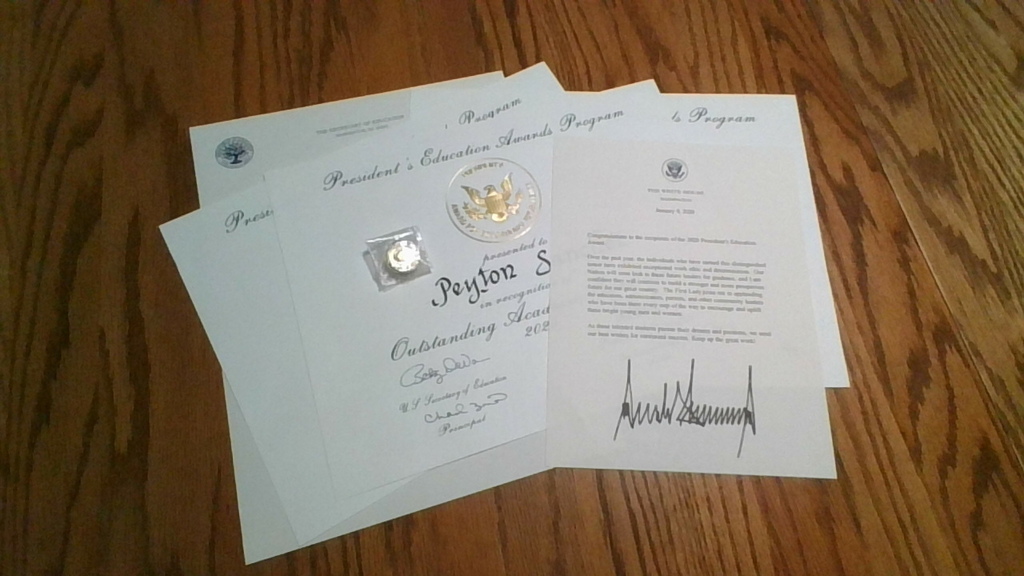 THE SECRETARY OF EDUCATION
Program
President's Education Awards Program
ls Program
Presi
presented to
Peyton S
in recognition
Outstanding Acad
202
U.S. Secretary of Education
Principal
THE WHITE HOUSE
WASHINGTON
January 9, 2020
Congratulations to the recipients of the 2020 President's Education
Award.
Over the past year, the individuals who have earned this distinguished
honor have exhibited exceptional work ethic and determination. Our
Nation will soon look to these future leaders for guidance, and I am
confident they will continue to build a stronger and more prosperous
future for our great country. The First Lady joins me in applauding
the educators, administrators, parents, and other community leaders
who have been there every step of the way to encourage and uplift
these bright young men and women.
As these talented students pursue their dreams and passions, we send
our best wishes for continued success. Keep up the great work!